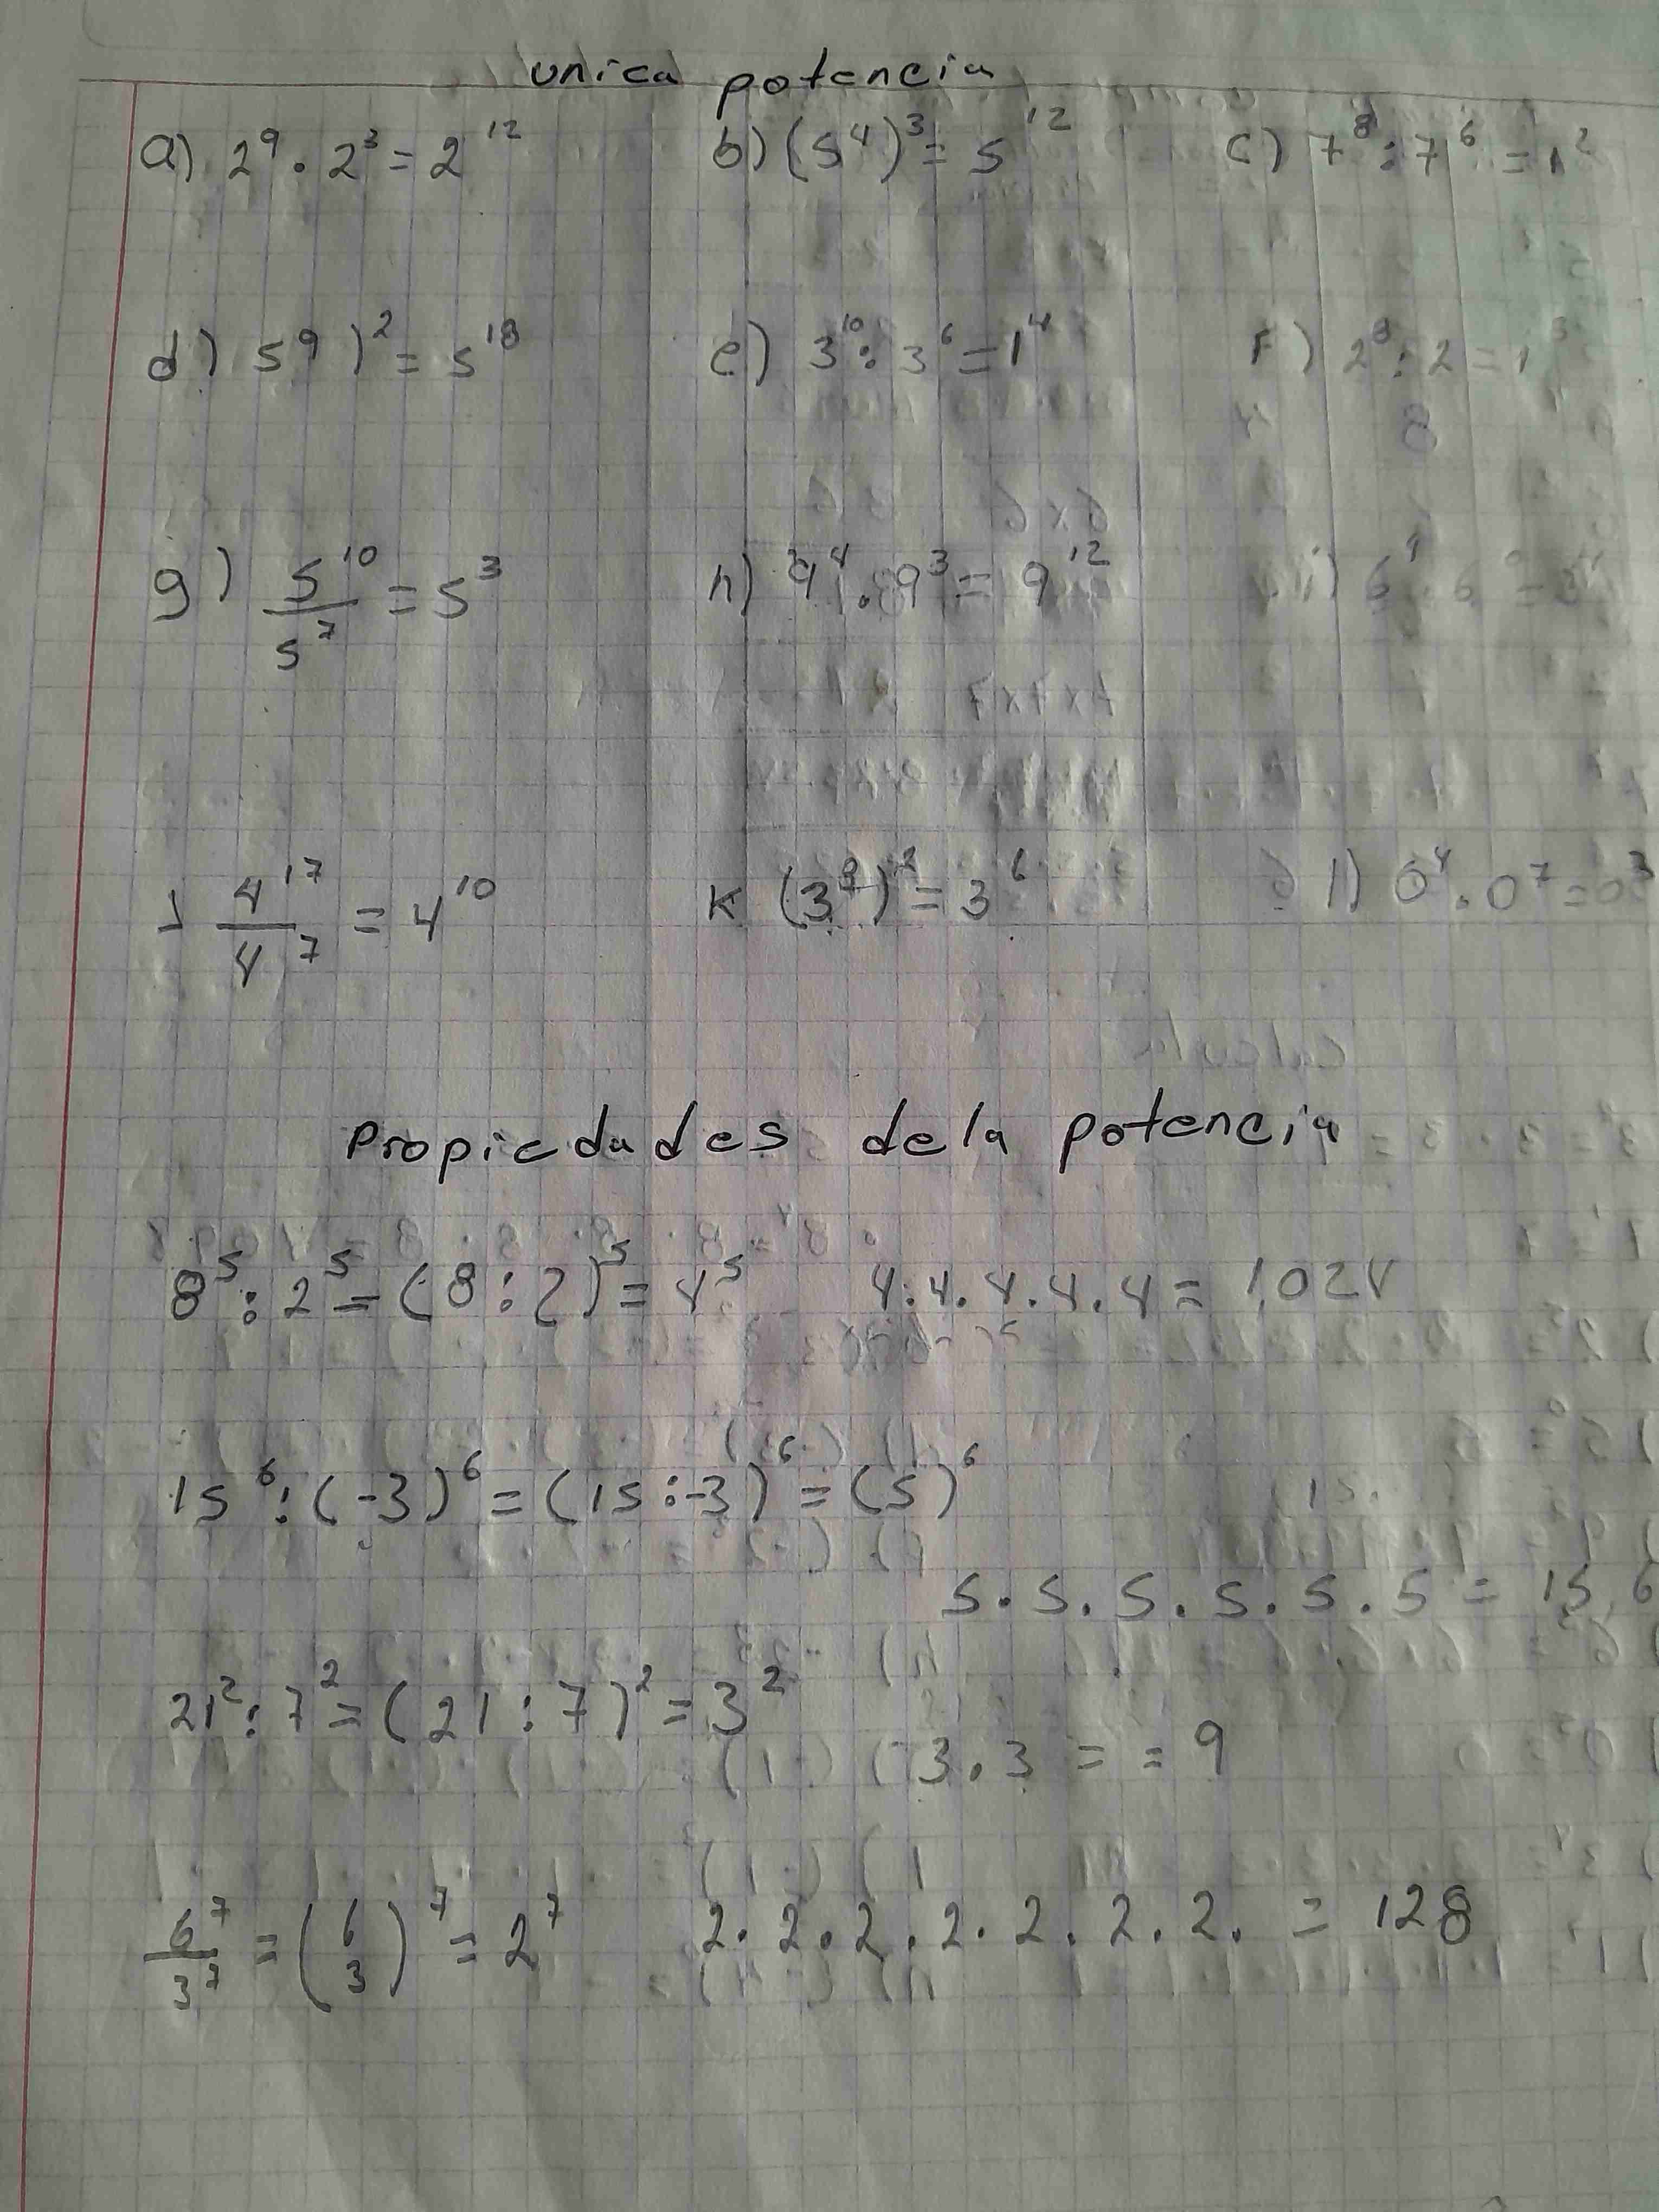 unica potencia
a) 2⁹ . 2³ = 2¹² b) (5⁴)³ = 5¹² c) 7⁸ : 7⁶ = 1²
d) 5⁹ )² = 5¹⁸ e) 3¹⁰ : 3⁶ = 1⁴ F) 2⁸ : 2 = 1
g) 5¹⁰/5⁷ = 5³ h) 9⁴ . 9³ = 9¹²
J 4¹⁷/4⁷ = 4¹⁰ K = 3⁶ l) 0⁴ . 0⁷ = 0³
Propiedades dela potencia
8⁵ : 2⁵ = (8 : 2)⁵ = 4⁵ 4.4.4.4.4 = 1024
15⁶ : (-3)⁶ = (15 : -3)⁶ = (5)⁶
5.5.5.5.5.5 = 15 6
21² : 7² = (21 : 7)² = 3²
3.3 = = 9
6⁷/3⁷ = (6/3)⁷ = 2⁷ 2.2.2.2.2.2.2. = 128